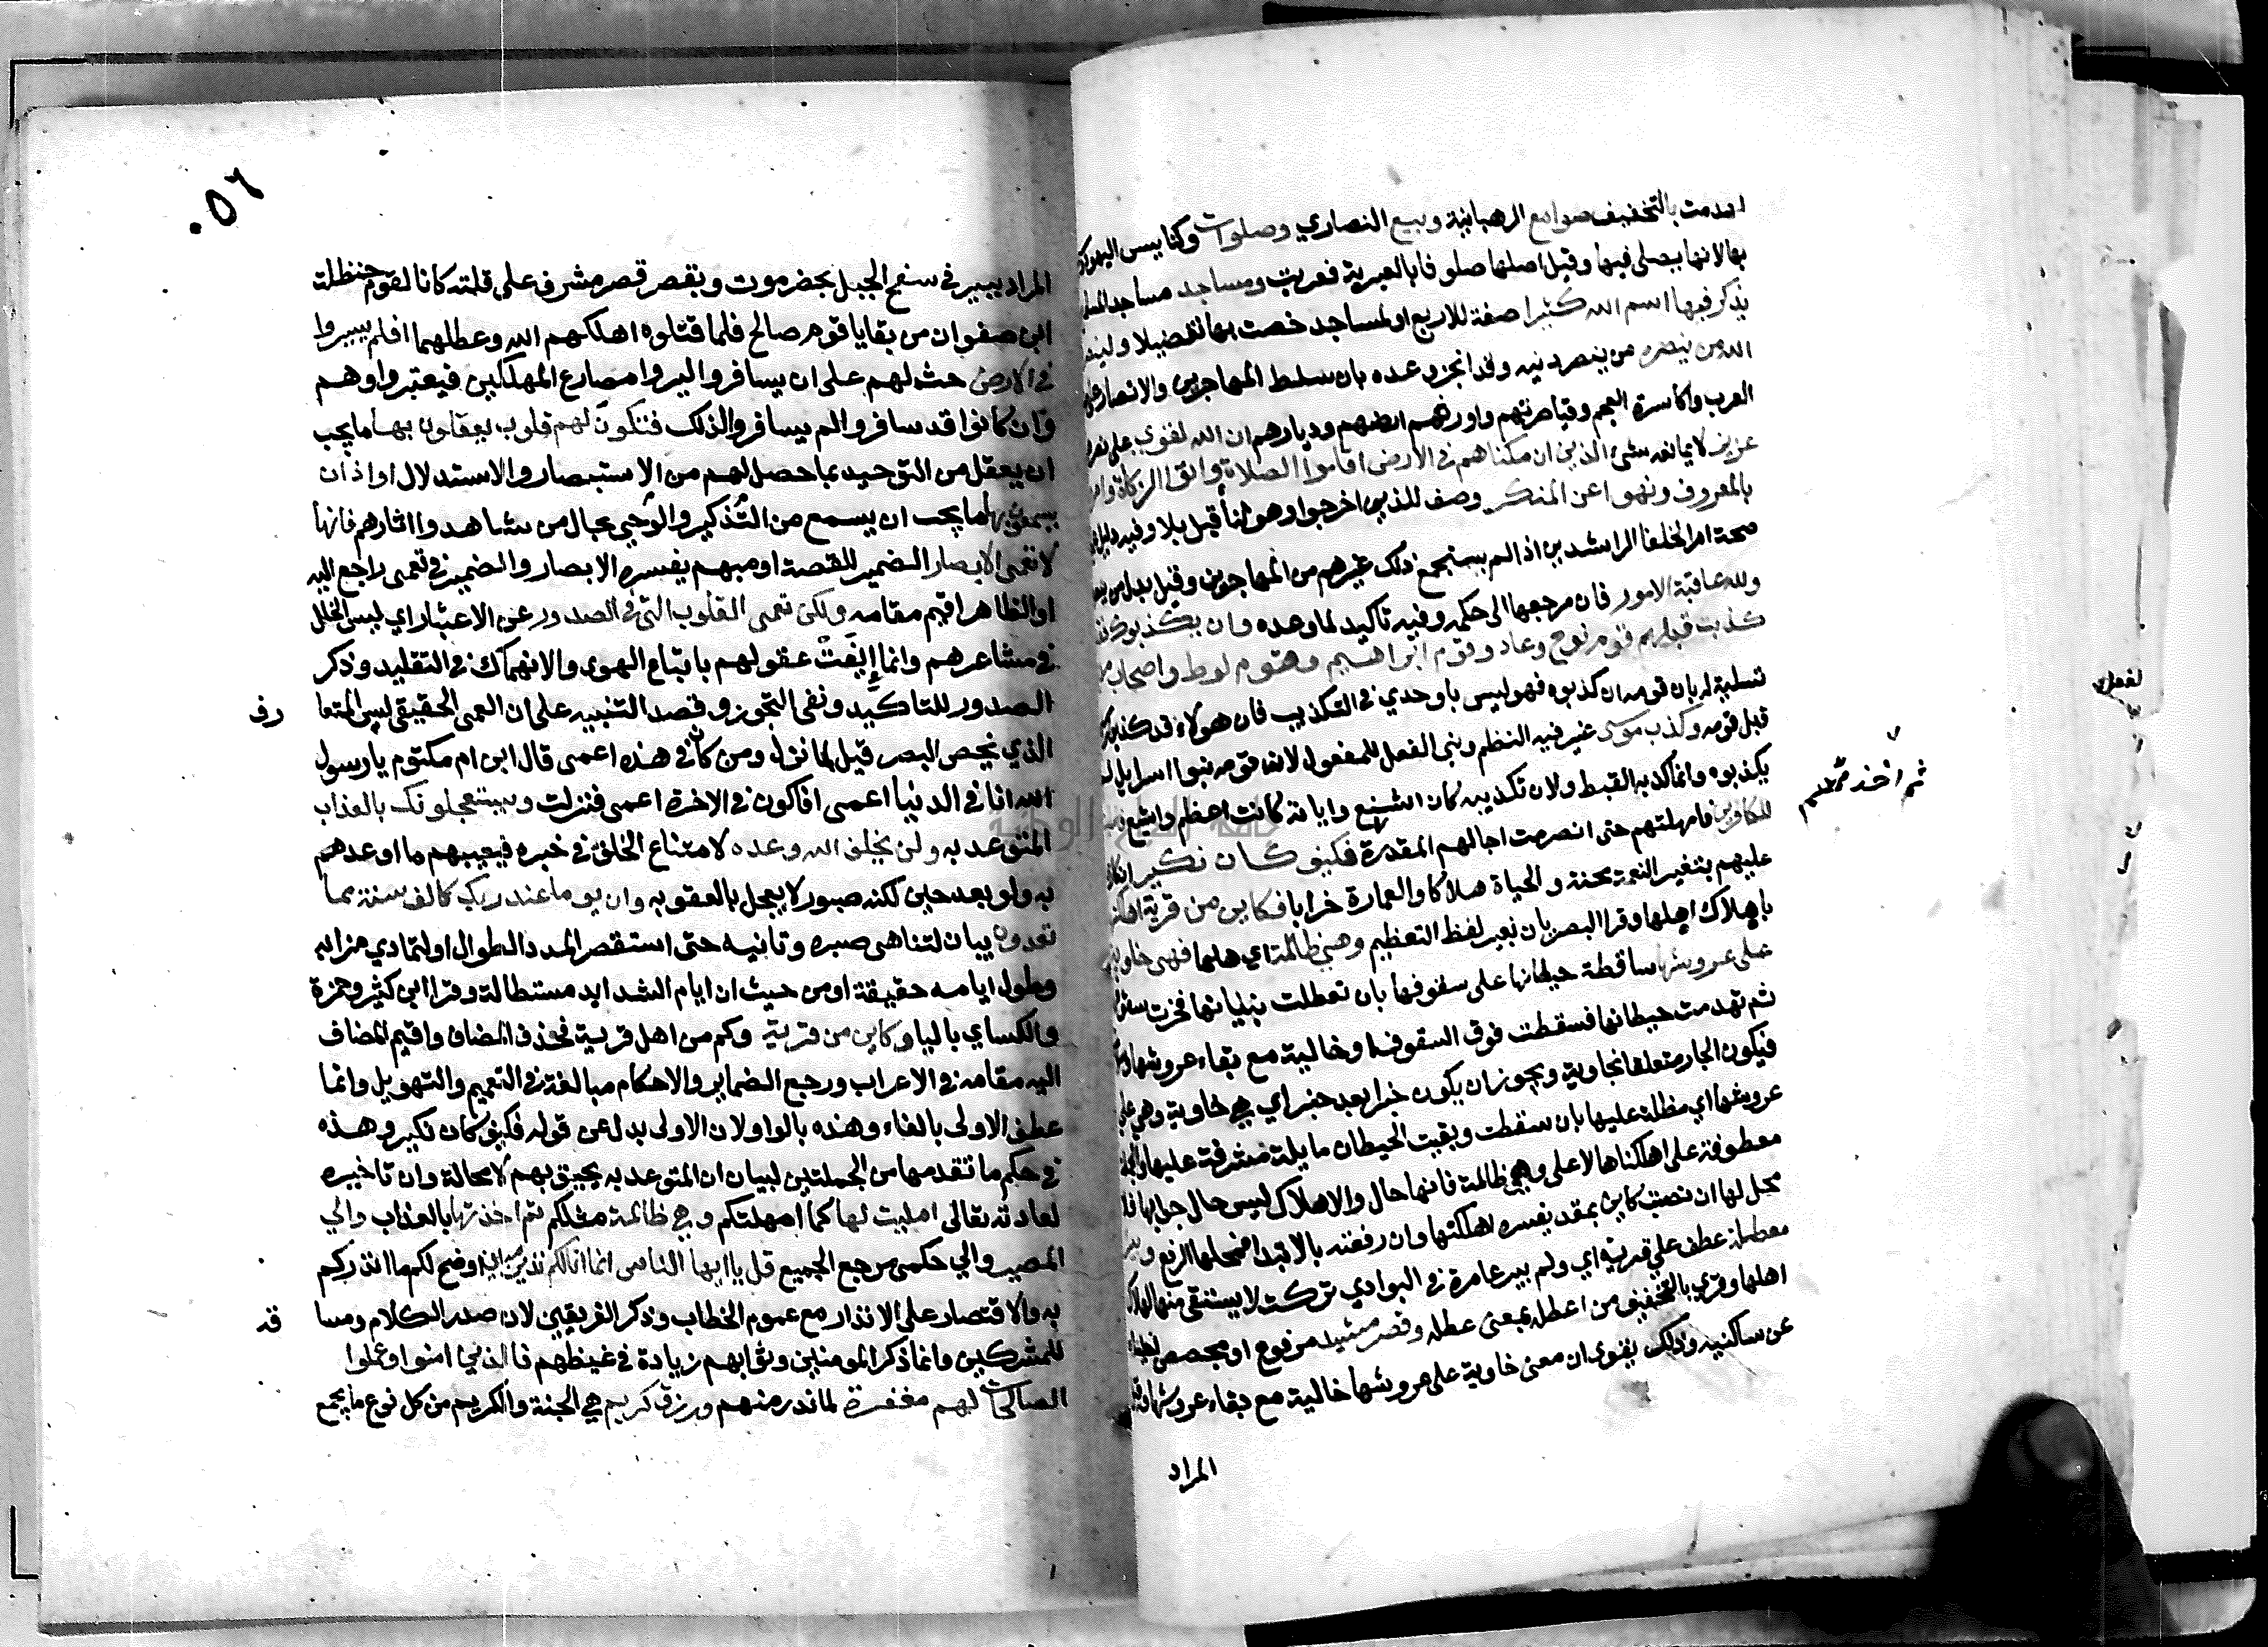 لهدمت بالتخفيف صوامع الرهبانية وبيع النصاري وصلوات وكنايس اليهود
بها لانها يصلى فيها وقيل اصلها صلوفا بالعبرية فعربت ومساجد مساجد المسلمين
يذكر فيها اسم الله كثيرا صفة للاربع او لمساجد خصت بها تفضيلا ولينصرن
الله من ينصره من ينصر دينه وقد انجز وعده بان سلط المهاجرين والانصار على
العرب واكاسرة العجم وقياصرتهم واورثهم ارضهم وديارهم ان الله لقوي على نصرهم
عزيز لا يمانعه شئ الذين ان مكناهم في الارض اقاموا الصلاة واتوا الزكاة وامروا
بالمعروف ونهوا عن المنكر وصف للذين اخرجوا وهو ثنا قبل بلا وفيه دليل على
صحة امر الخلفا الراشدين اذ لم يستجمع ذلك غيرهم من المهاجرين وقيل بدل من ينصره
ولله عاقبة الامور فان مرجعها الى حكمه وفيه تاكيد لما وعده وان يكذبوك فقد
كذبت قبلهم قوم نوح وعاد وقوم ابراهيم وقوم لوط واصحاب
تسلية له بان قومه ان كذبوه فهو ليس باوحدي في التكذيب فان هولاء قد كذبوا
قبل قومه وكذب موسى غير فيه النظم وبنى الفعل للمفعول لان قومه بنوا اسرايل لم
يكذبوه وانما كذبه القبط ولان تكذيبه كان اشنع واياته كانت اعظم واشيع
للكافرين فامهلتهم حتى انصرمت اجالهم المقدرة فكيف كان نكير
ثم اخذتهم
عليهم بتغير النعمة محنة والحياة هلاكا والعمارة خرابا فكاين من قرية اهلكناها
باهلاك اهلها وقرا البصريان بغير لفظ التعظيم وهي ظالمة اي اهلها فهي خاوية
على عروشها ساقطة حيطانها على سقوفها بان تعطلت بنيانها فخرت سقوفها
ثم تهدمت حيطانها فسقطت فوق السقوف او خالية مع بقاء عروشها
فيكون الجار متعلقا بخاوية ويجوز ان يكون خبرا بعد خبر اي هي خاوية وهي على
عروشها اي مظلة عليها بان سقطت وبقيت الحيطان مايلة مشرفة عليها والجملة
معطوفة على اهلكناها لا على وهي ظالمة فانها حال والاهلاك ليس حال خرابها فلا
محل لها ان نصبت كاين بمقدر يفسره اهلكتها وان رفعته بالابتدا فمحلها الرفع وبير
معطلة عطف على قرية اي ولم بير عامرة في البوادي تركت لا يستقى منها لهلاك
اهلها وقري بالتخفيف من اعطله بمعنى عطله وقصر مشيد مرفوع او مجصص
عن ساكنيه وذلك يقوى ان معنى خاوية على عروشها خالية مع بقاء عروشها
المراد
٥٦
المراد ببير في سفح الجبل بحضرموت وبقصر قصر مشرف على قلته كانا لقوم حنظلة
ابن صفوان من بقايا قوم صالح فلما قتلوه اهلكهم الله وعطلهما افلم يسيروا
في الارض حث لهم على ان يسافروا ليروا مصارع المهلكين فيعتبروا وهم
وان كانوا قد سافروا لم يسافروا لذلك فتكون لهم قلوب يعقلون بها ما يجب
ان يعقل من التوحيد بما حصل لهم من الاستبصار والاستدلال او اذان
يسمعون بها ما يجب ان يسمع من التذكير والوحي بحال من شاهدوا اثارهم فانها
لا تعمى الابصار الضمير للقصة او مبهم يفسره الابصار والضمير في تعمى راجع اليه
او الظاهر اقيم مقامه ولكن تعمى القلوب التي في الصدور عن الاعتبار اي ليس الخلل
في مشاعرهم وانما إيفت عقولهم باتباع الهوى والانهماك في التقليد وذكر
الصدور للتاكيد ونفى التجوز وقصد التنبيه على ان العمى الحقيقي ليس المتعا
رف
الذي يخص البصر قيل لما نزل ومن كان في هذه اعمى قال ابن ام مكتوم يا رسول
الله انا في الدنيا اعمى افاكون في الاخرة اعمى فنزلت ويستعجلونك بالعذاب
المتوعد به ولن يخلف الله وعده لامتناع الخلف في خبره فيصيبهم ما اوعدهم
به ولو بعد حين لكنه صبور لا يعجل بالعقوبه وان يوما عند ربك كالف سنة مما
تعدون بيان لتناهى صبره وتانيه حتى استقصر المدد الطوال او لتمادي عذابه
وطول ايامه حقيقة او من حيث ان ايام الشدايد مستطالة وقرا ابن كثير وحمزة
والكساي باليا وكاين من قرية وكم من اهل قرية فحذف المضاف واقيم المضاف
اليه مقامه في الاعراب ورجع الضماير والاحكام مبالغة في التعميم والتهويل وانما
عطف الاولى بالفاء وهذه بالواو لان الاولى بدل عن قوله فكيف كان نكير وهذه
في حكم ما تقدمها من الجملتين لبيان ان المتوعد به يحيق بهم لا محالة وان تاخيره
لعادته تعالى امليت لها كما امهلتكم وهي ظالمة مثلكم ثم اخذتها بالعذاب والي
المصير والي حكمى مرجع الجميع قل يا ايها الناس انما انا لكم نذير مبين اوضح لكم ما انذركم
به والاقتصار على الانذار مع عموم الخطاب وذكر الفريقين لان صدر الكلام ومسا
قه
للمشركين وانما ذكر المومنين وثوابهم زيادة في غيظهم فالذين امنوا وعملوا
الصالحات لهم مغفرة لما ندر منهم ورزق كريم هي الجنة والكريم من كل نوع ما يجمع